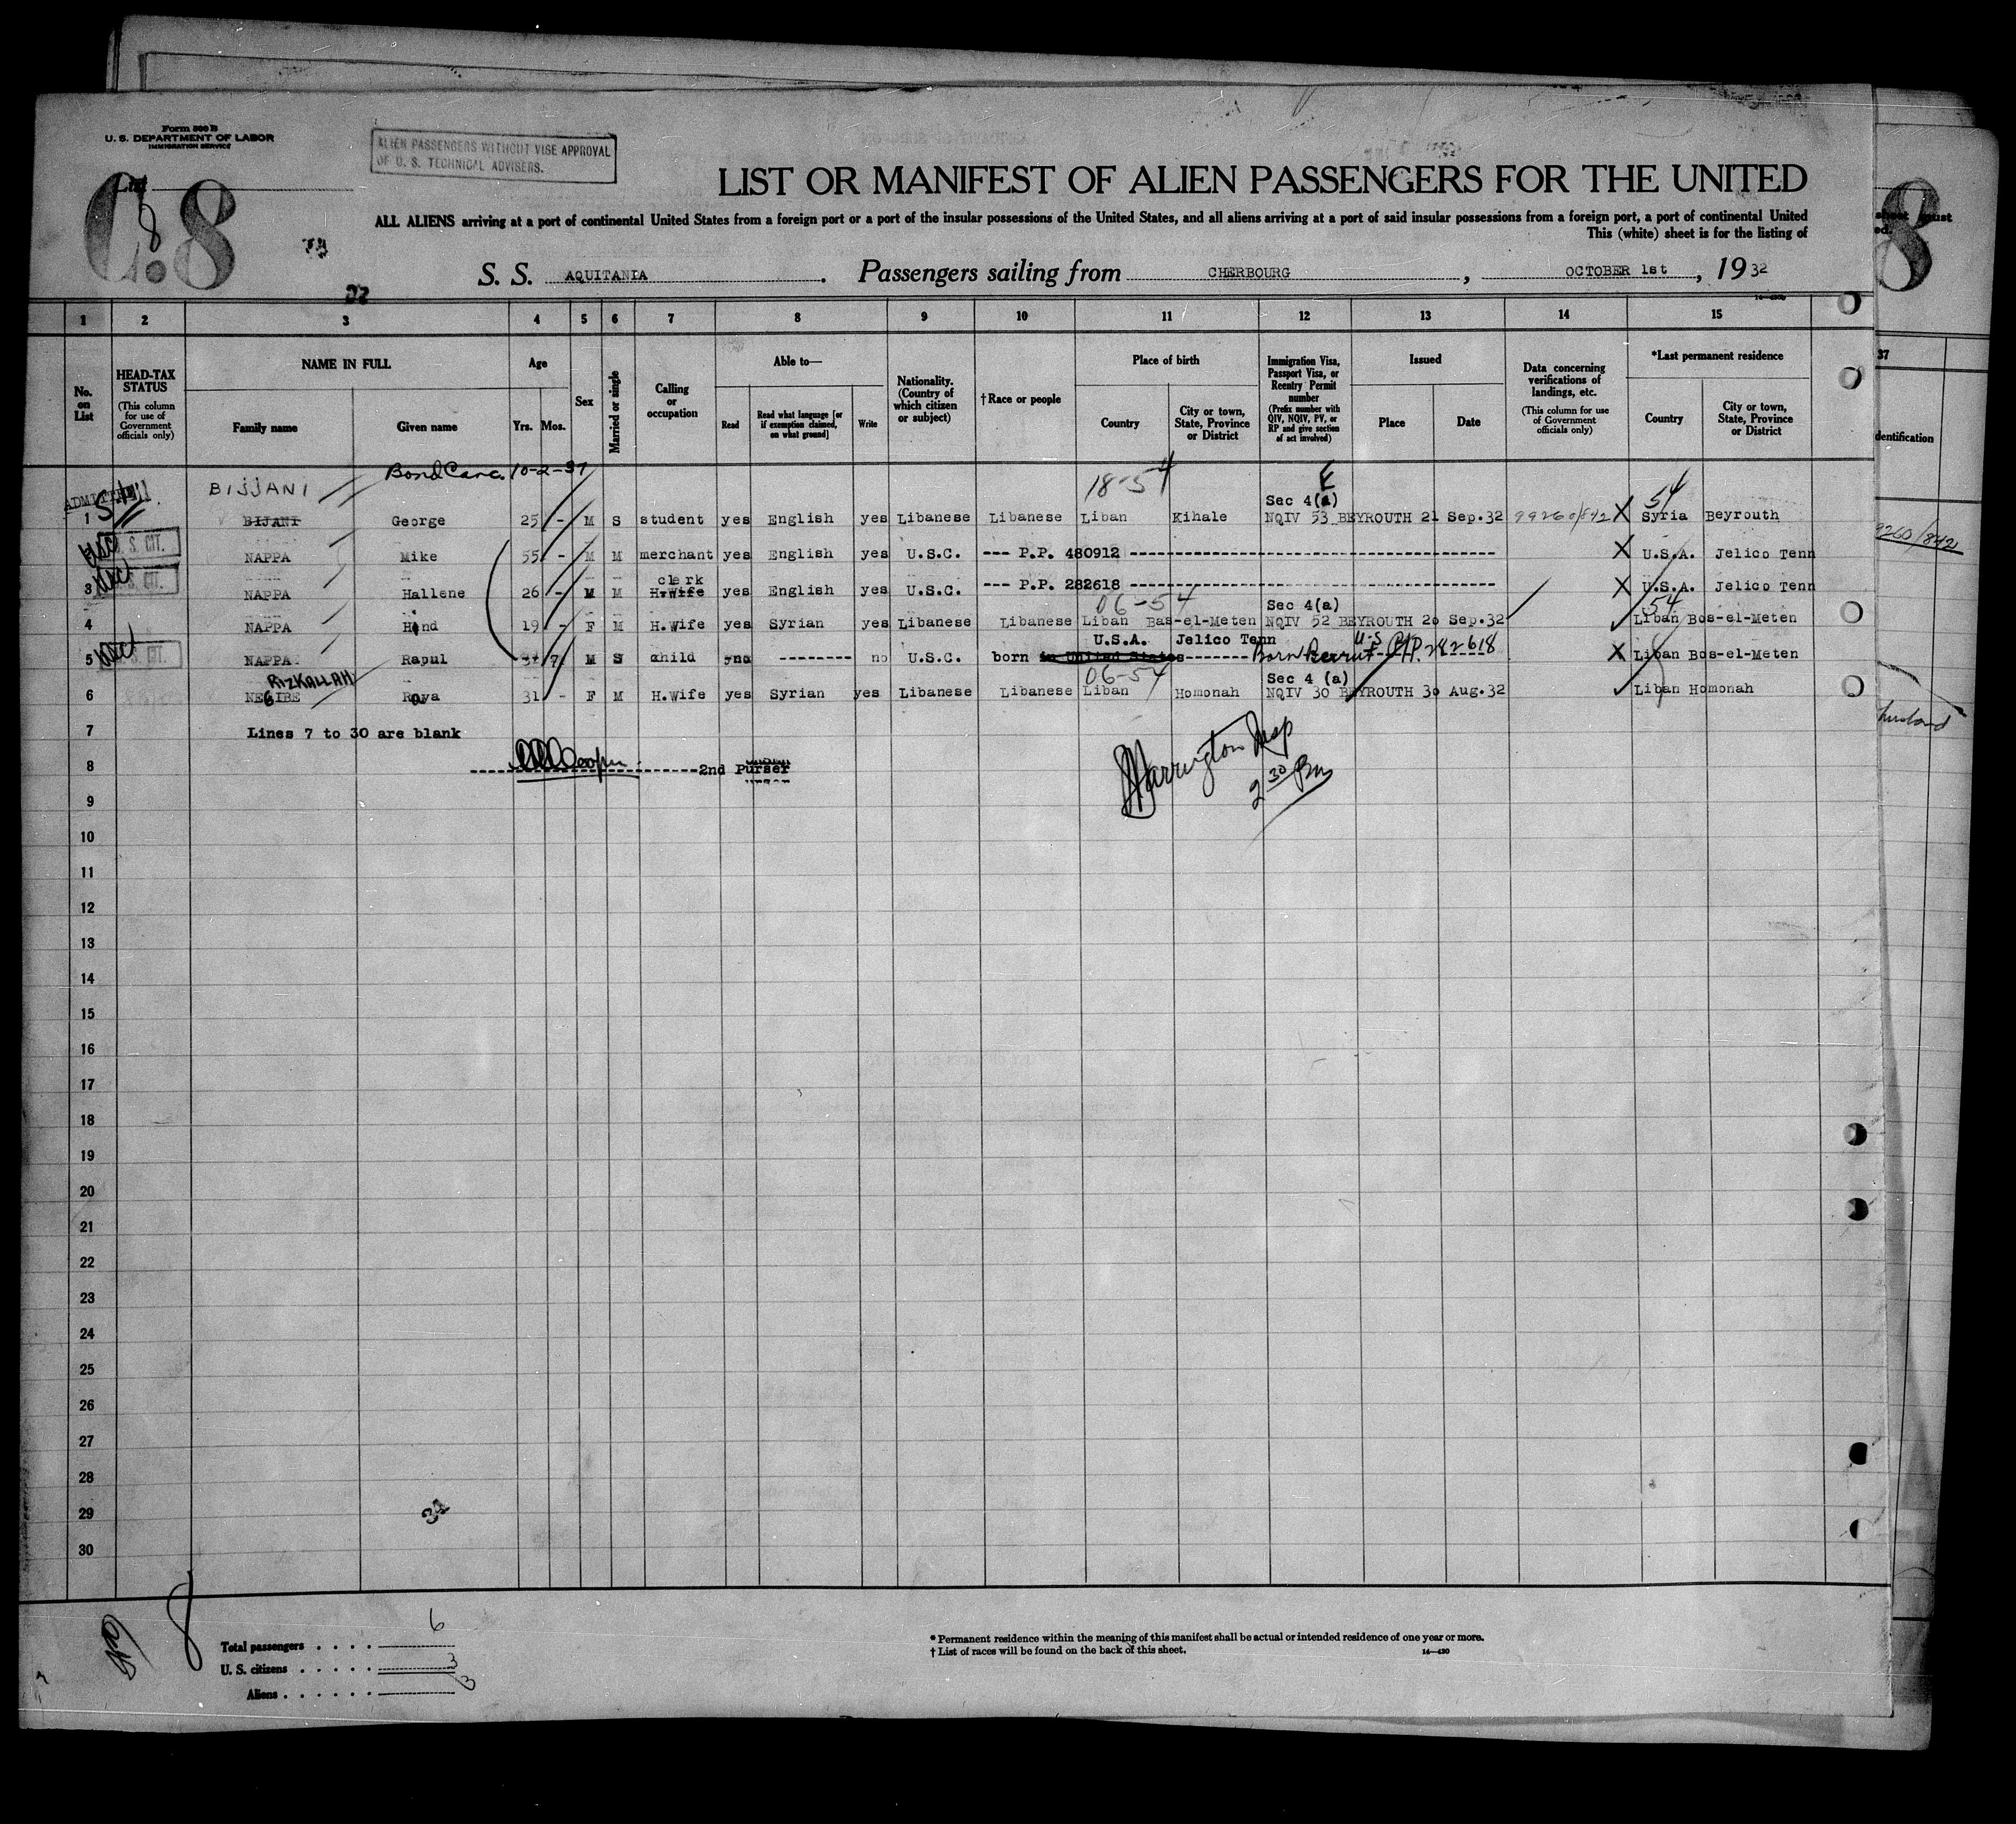 Form 500 B
U. S. DEPARTMENT OF LABOR
IMMIGRATION SERVICE
ALIEN PASSENGERS WITHOUT VISE APPROVAL
OF U. S. TECHNICAL ADVISERS.
List
8
LIST OR MANIFEST OF ALIEN PASSENGERS FOR THE UNITED
ALL ALIENS arriving at a port of continental United States from a foreign port or a port of the insular possessions of the United States, and all aliens arriving at a port of said insular possessions from a foreign port, a port of continental United
This (white) sheet is for the listing of
S. S. AQUITANIA. Passengers sailing from CHERBOURG, OCTOBER 1st, 1932
1 2 3 4 5 6 7 8 9 10 11 12 13 14 15
No. on List
HEAD-TAX STATUS
(This column for use of Government officials only)
NAME IN FULL
Family name Given name
Age
Yrs. Mos.
Sex
Married or single
Calling or occupation
Able to—
Read Read what language [or if exemption claimed, on what ground] Write
Nationality. (Country of which citizen or subject)
†Race or people
Place of birth
Country City or town, State, Province or District
Immigration Visa, Passport Visa, or Reentry Permit number
(Prefix number with QIV, NQIV, PV, or RP and give section of act involved)
Issued
Place Date
Data concerning verifications of landings, etc.
(This column for use of Government officials only)
*Last permanent residence
Country City or town, State, Province or District
37
identification
Bond Canc. 10-2-37
ADMITTED BIJJANI 18-54 E 54
Sec 4(a)
1 BIJANI George 25 - M S student yes English yes Libanese Libanese Liban Kihale NQIV 53 BEYROUTH 21 Sep.32 99260/842 X Syria Beyrouth
U. S. CIT. NAPPA Mike 55 - M M merchant yes English yes U.S.C. --- P.P. 480912 X U.S.A. Jelico Tenn
clerk
3 U. S. CIT. NAPPA Hallene 26 - M M H.Wife yes English yes U.S.C. --- P.P. 282618 X U.S.A. Jelico Tenn
06-54 Sec 4(a) 54
4 NAPPA Hind 19 - F M H.Wife yes Syrian yes Libanese Libanese Liban Bas-el-Meten NQIV 52 BEYROUTH 20 Sep.32 Liban Bos-el-Meten
U.S.A. Jelico Tenn U-S
5 U. S. CIT. NAPPA Rapul 7 M S child no -------- no U.S.C. born in United States Born Beirut P.P. 282618 X Liban Bos-el-Meten
RIZKALLAH 06-54 Sec 4 (a)
6 NEGIBE Roya 31 - F M H.Wife yes Syrian yes Libanese Libanese Liban Homonah NQIV 30 BEYROUTH 30 Aug.32 Liban Homonah
husband
7 Lines 7 to 30 are blank
8 2nd Purser
Harrington Insp
2 30 Pm
9
10
11
12
13
14
15
16
17
18
19
20
21
22
23
24
25
26
27
28
29
30
8
Total passengers . . . . 6
U. S. citizens . . . . . 3
Aliens . . . . . . 3
* Permanent residence within the meaning of this manifest shall be actual or intended residence of one year or more.
† List of races will be found on the back of this sheet.